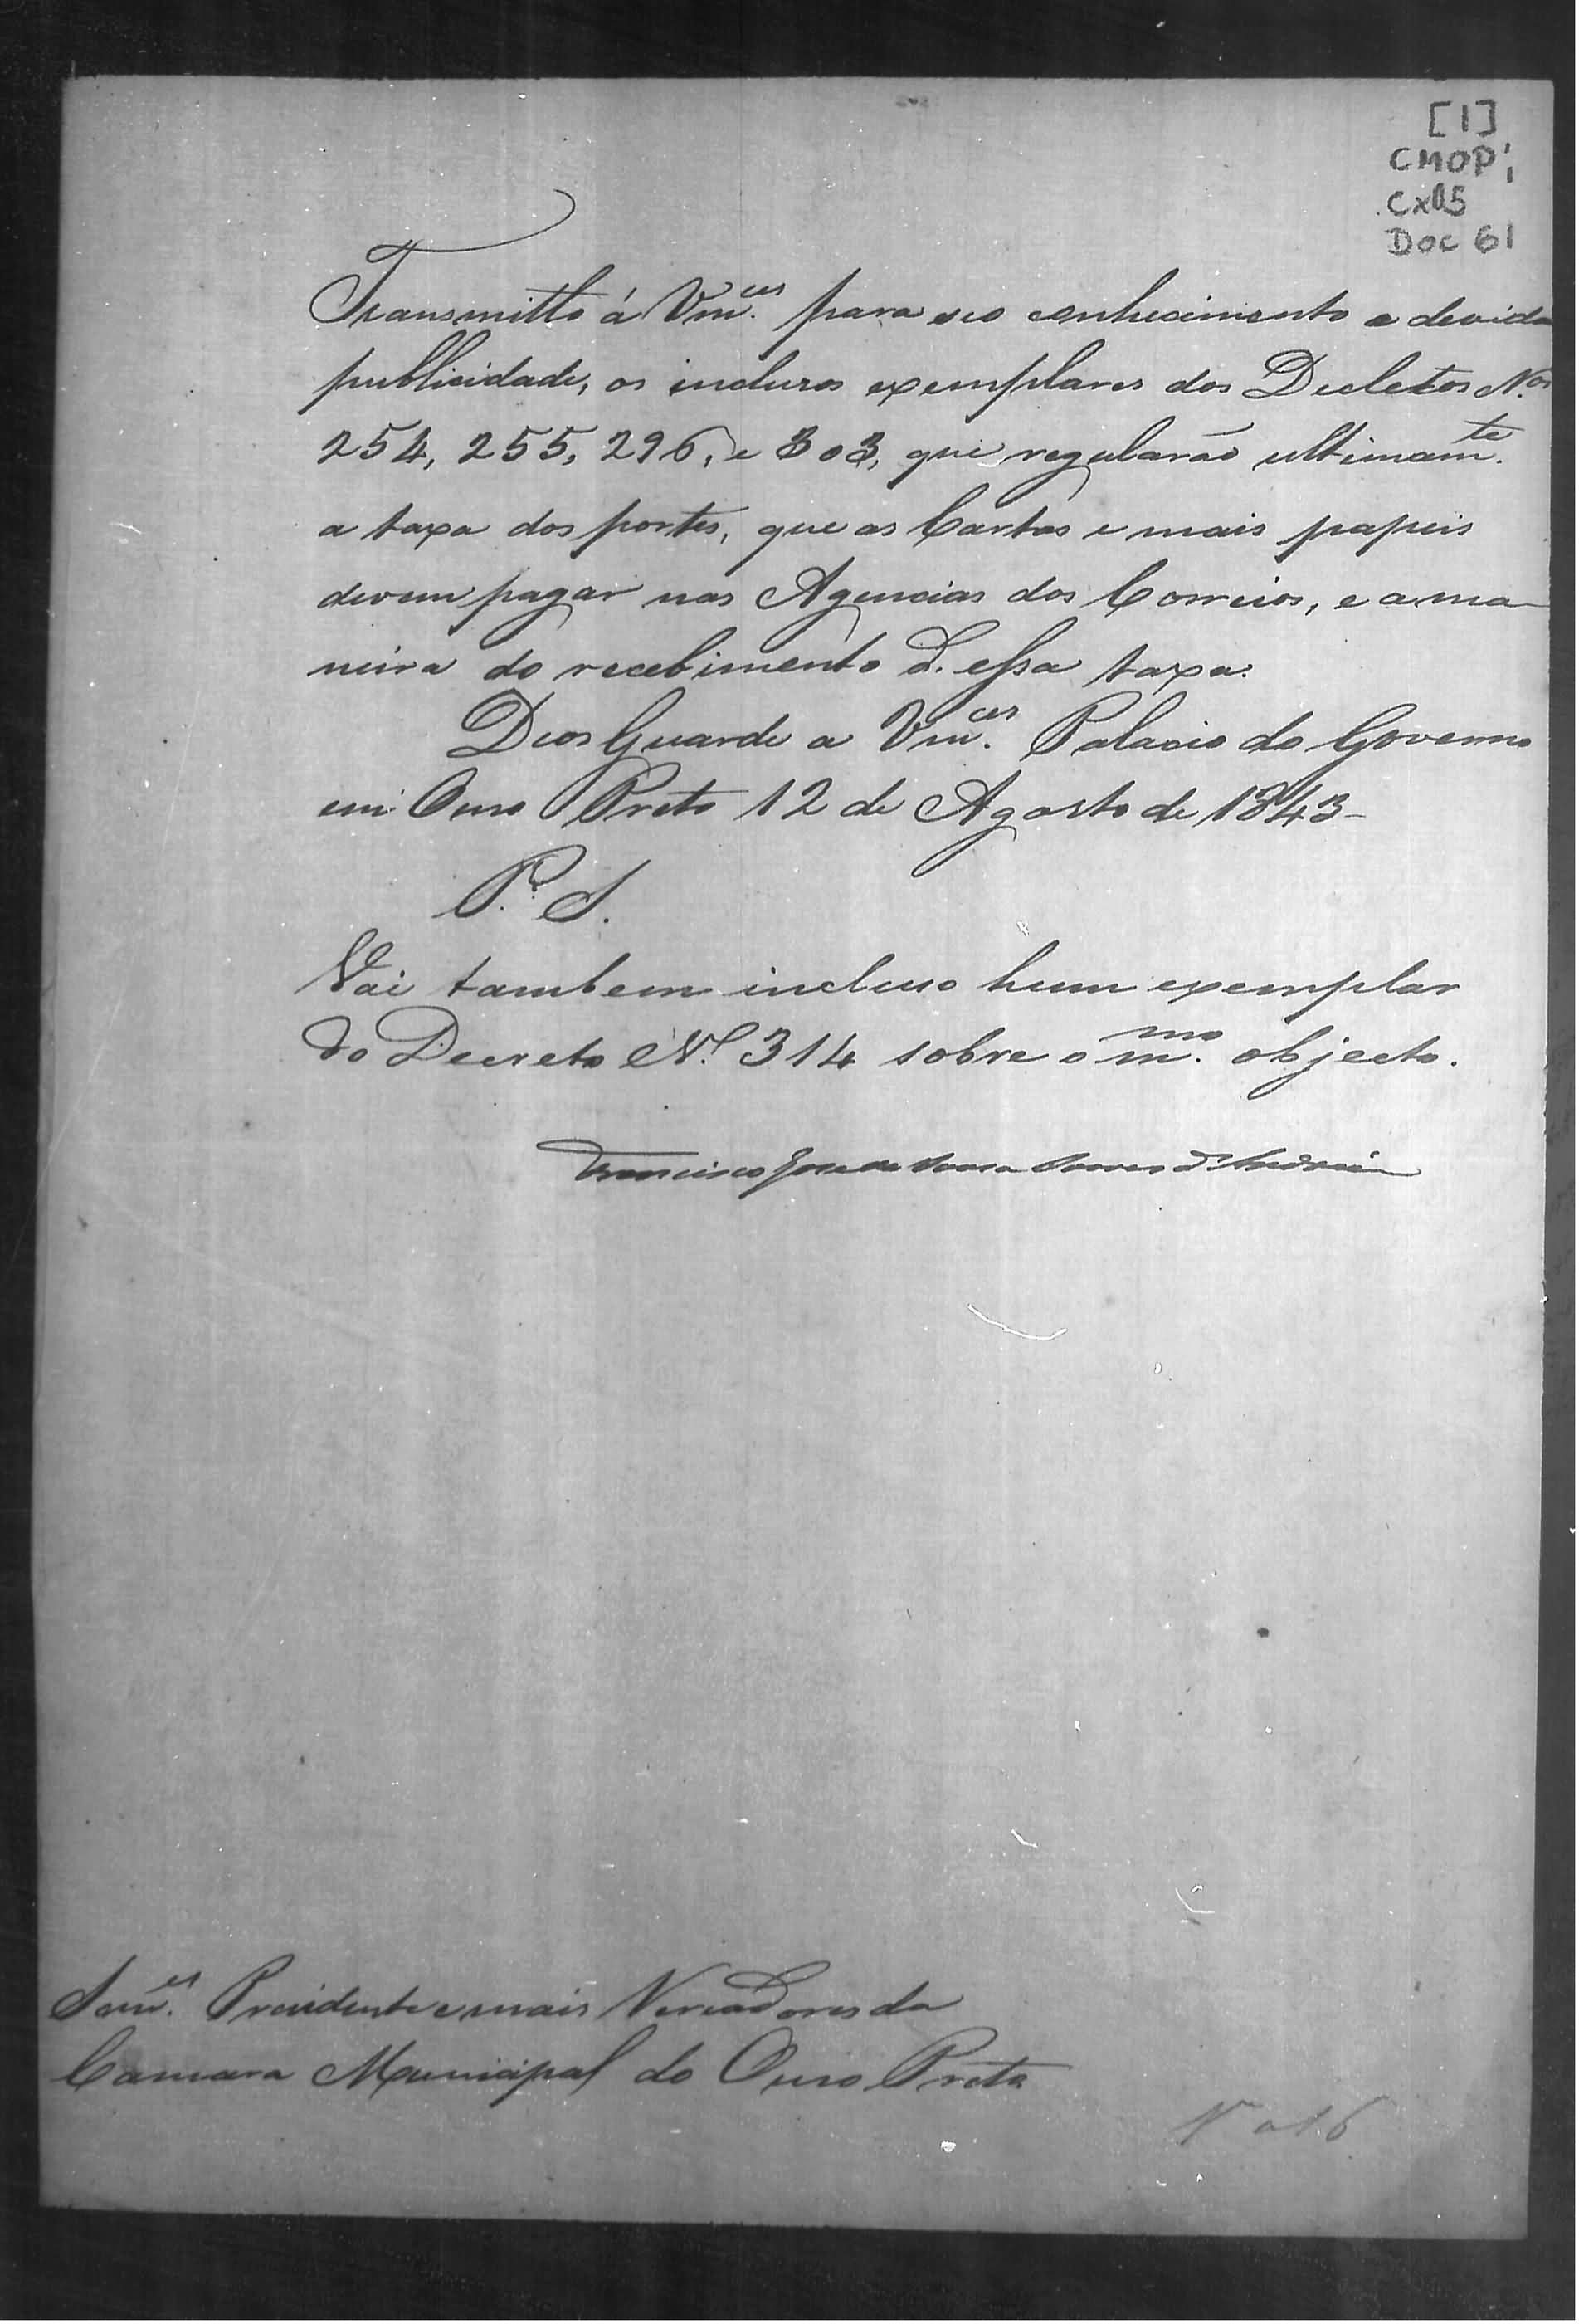 [1]
CMOP
Cx 05
Doc 61
Transmitto á Vm.ces para seo conhecimento e devida
publicidade, os inclusos exemplares dos Decletos N.os
254, 255, 296, e 303, que regularão ultimam.te
a taxa dos portes, que as Cartas e mais papeis
devem pagar nas Agencias dos Correios, e a ma-
neira do recebimento d'essa taxa.
Deos Guarde a Vm.ces Palacio do Governo
em Ouro Preto 12 de Agosto de 1843-
P. S.
Vai tambem incluso hum exemplar
do Decreto N.º 314 sobre o m.mo objecto.
Francisco Jose de Sousa Soares d'Andréa
Snr.es Presidente e mais Vereadores da
Camara Municipal do Ouro Preto